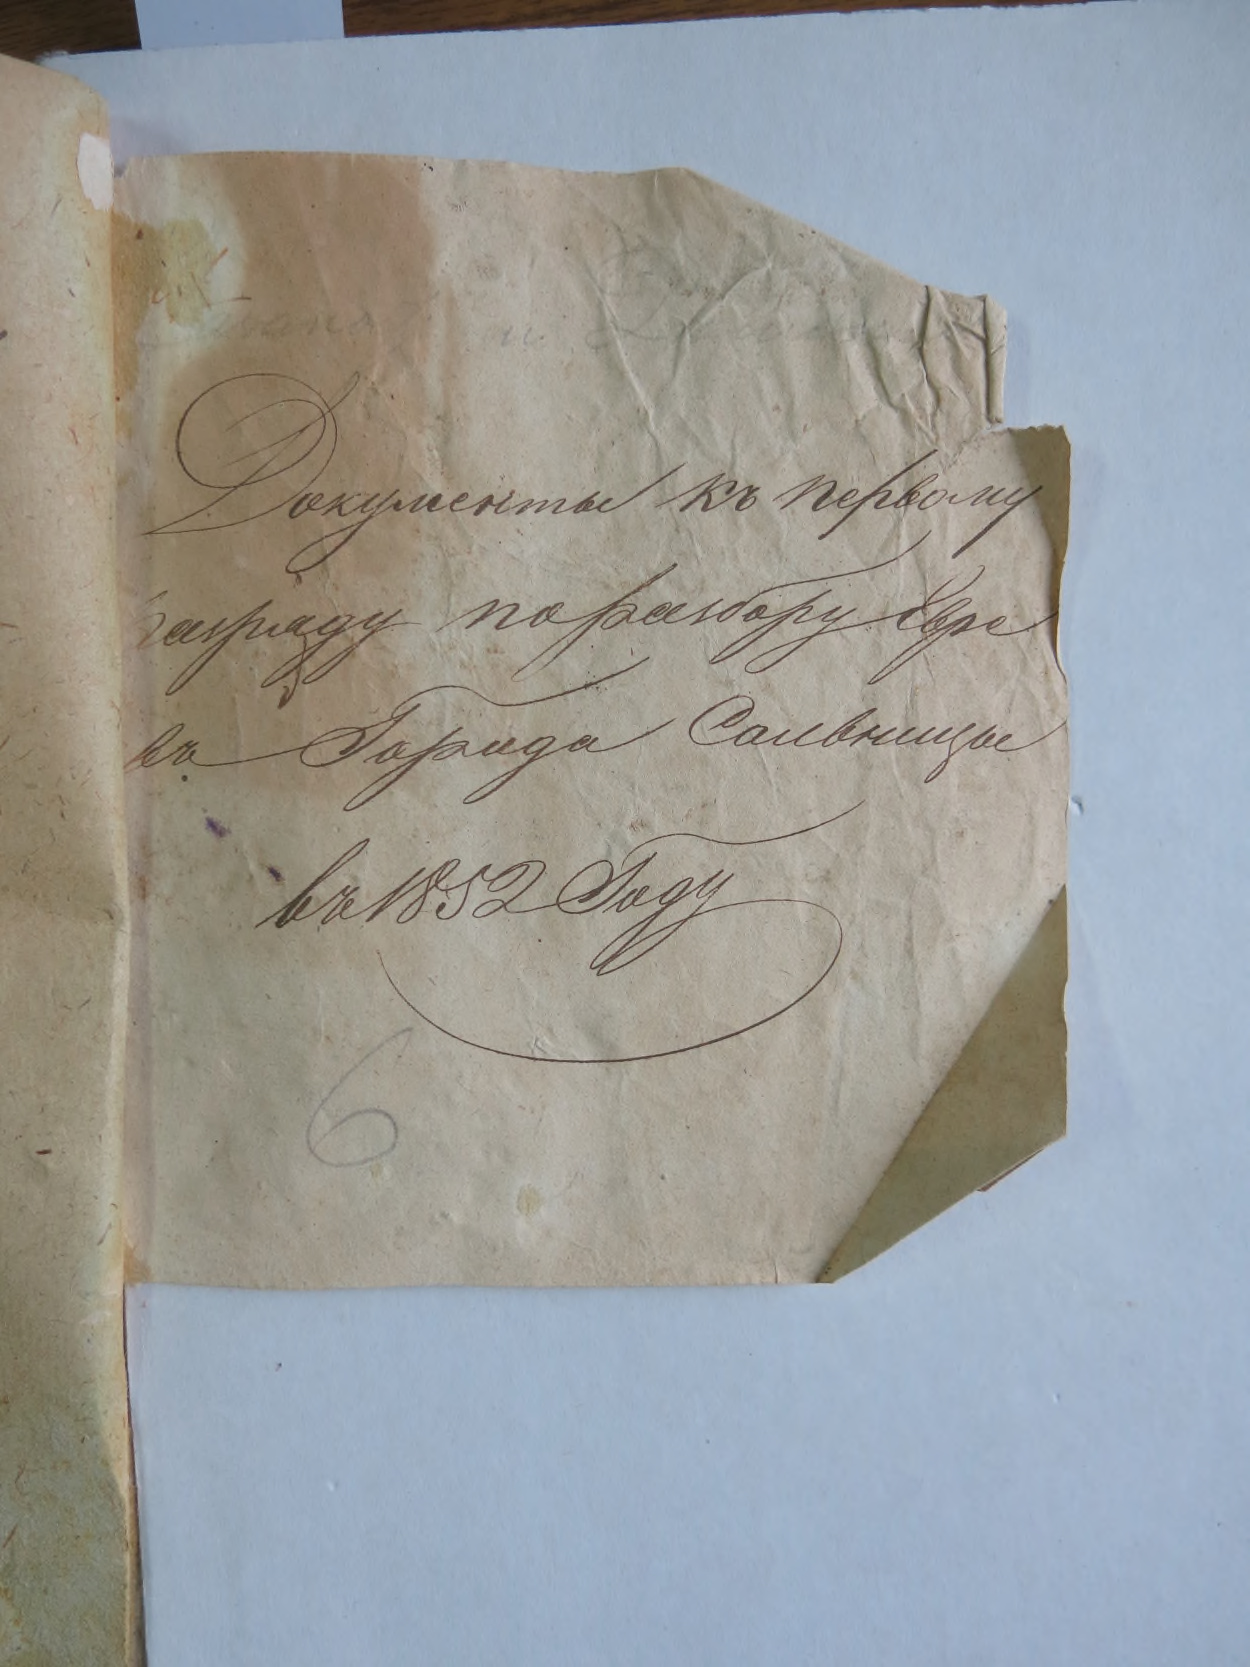 Документы къ первому
разряду по разбору Евре
въ Города Сальницы
въ 1852 Году
6